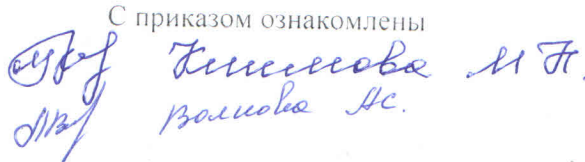 С приказом ознакомлены
Климова М Н.
Волкова АС.